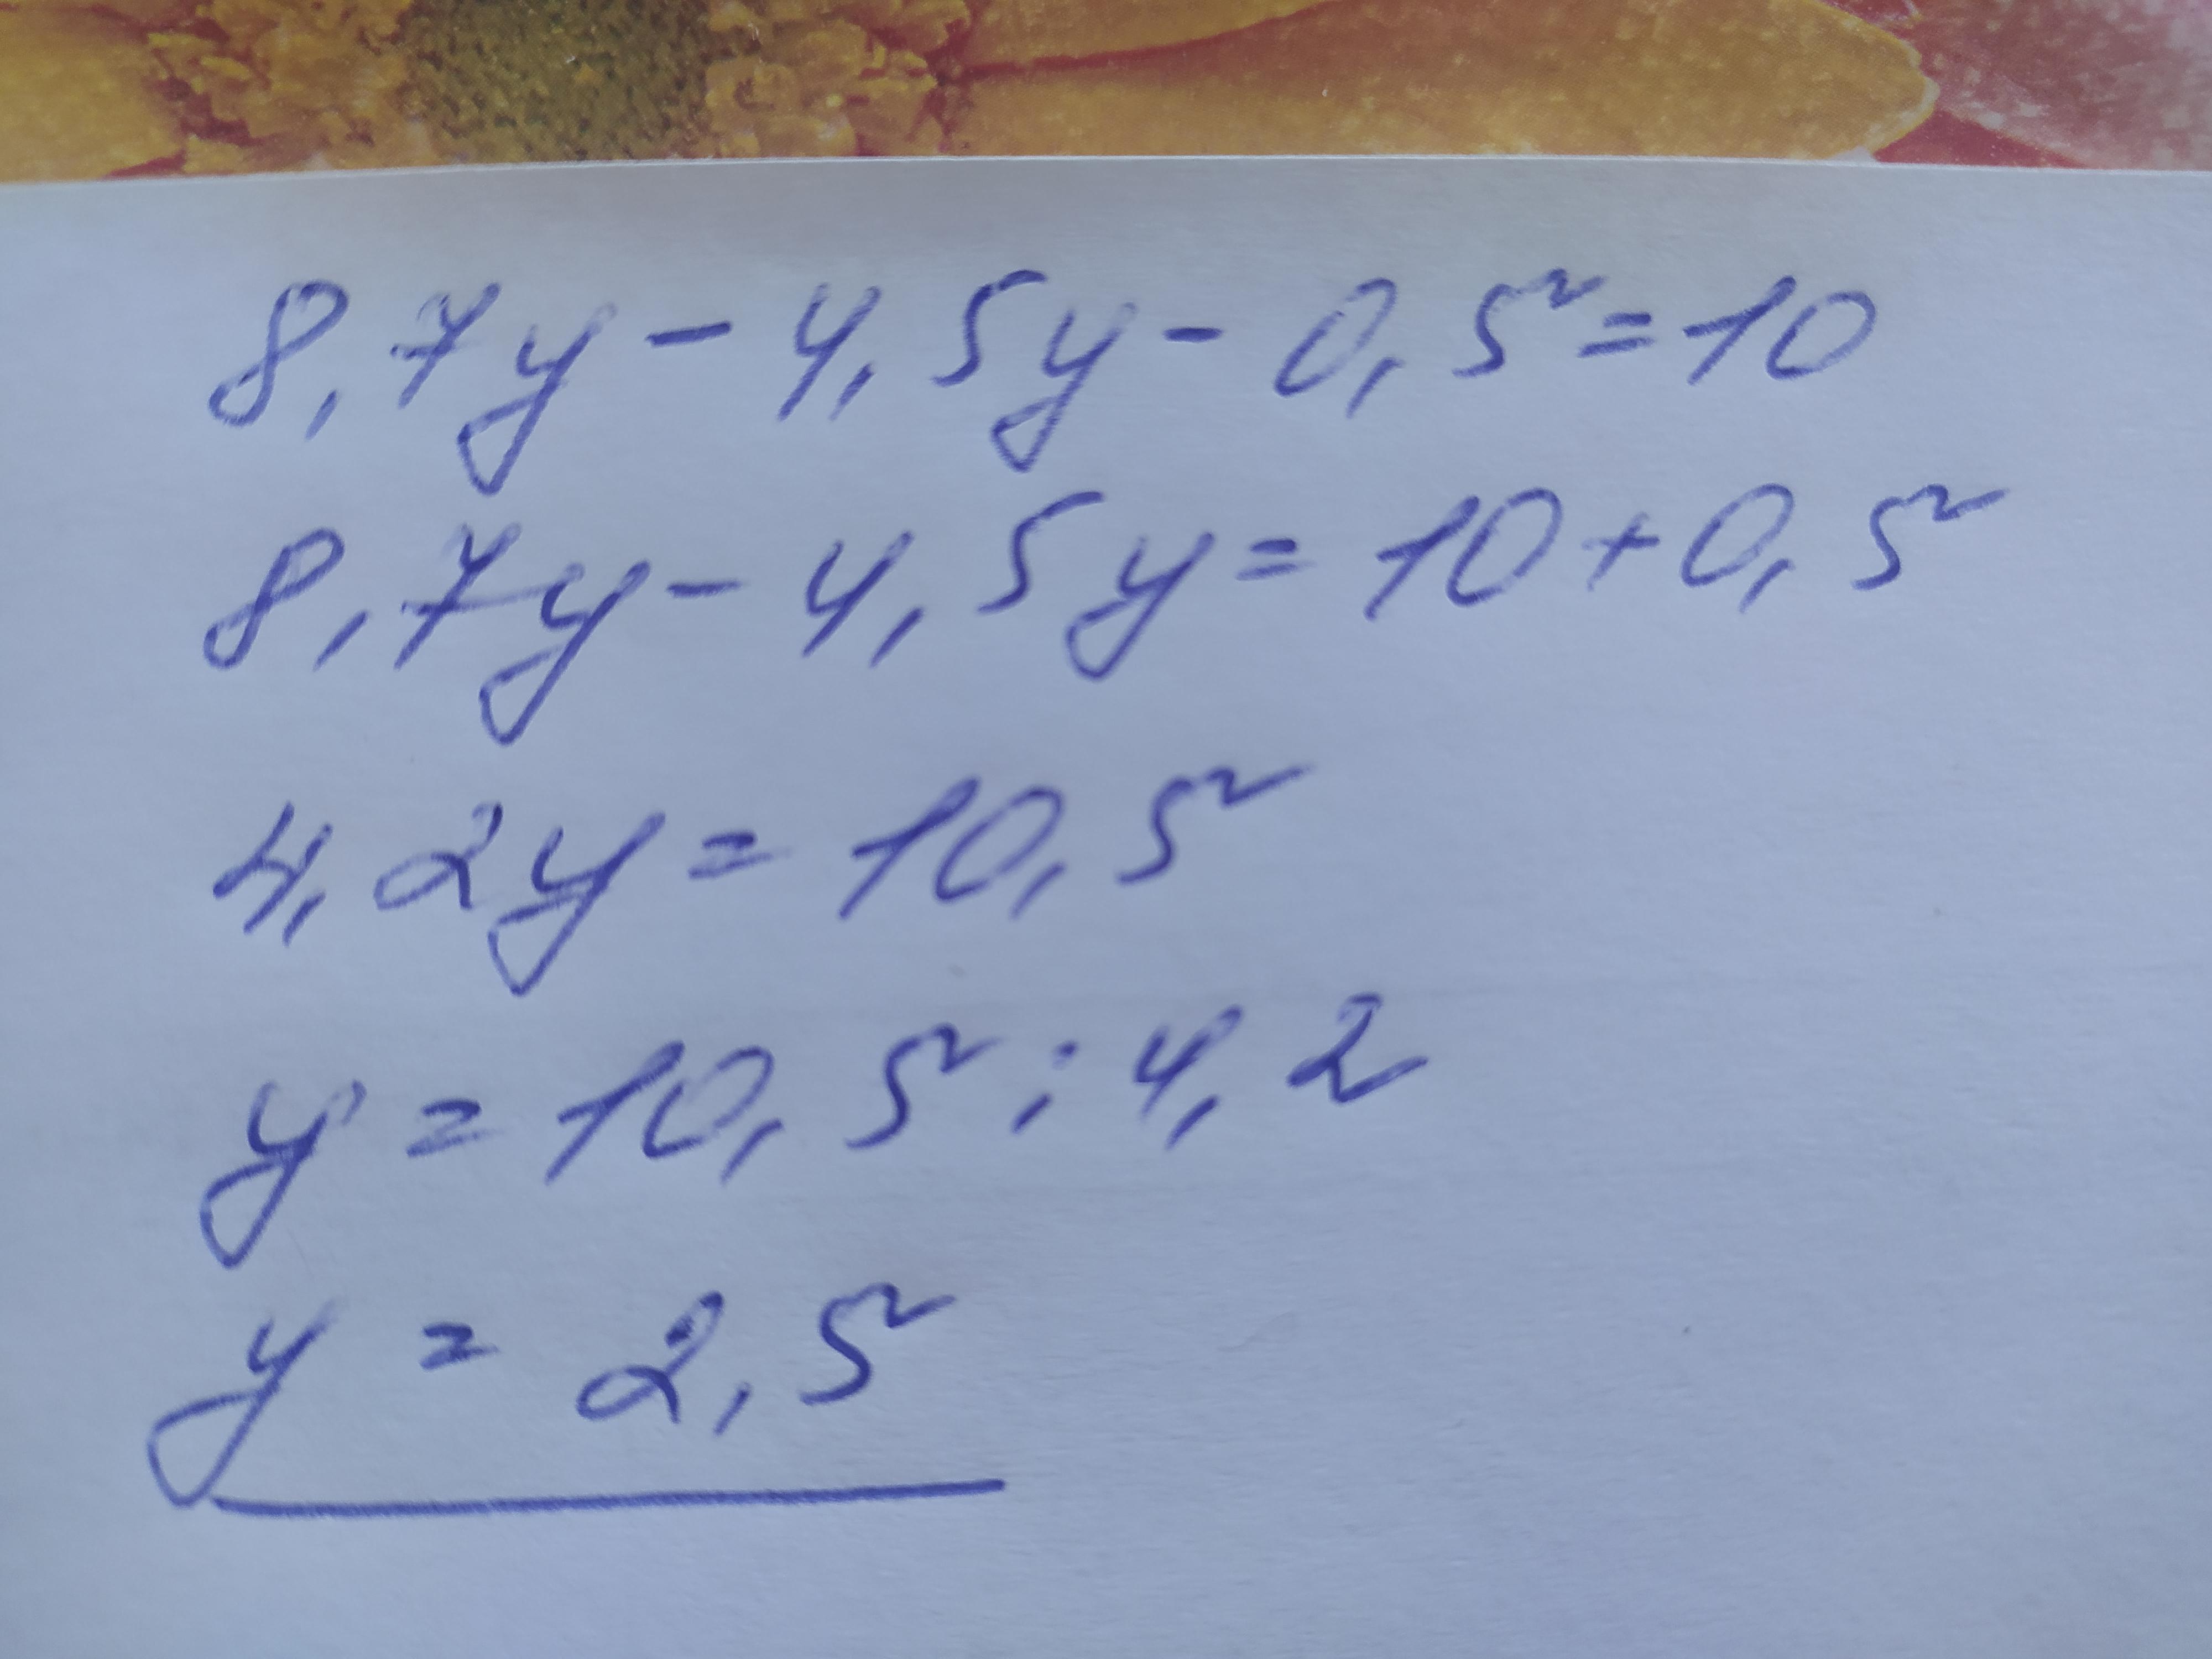 8,7y - 4,5y - 0,5 = 10
8,7y - 4,5y = 10 + 0,5
4,2y = 10,5
y = 10,5 : 4,2
y = 2,5